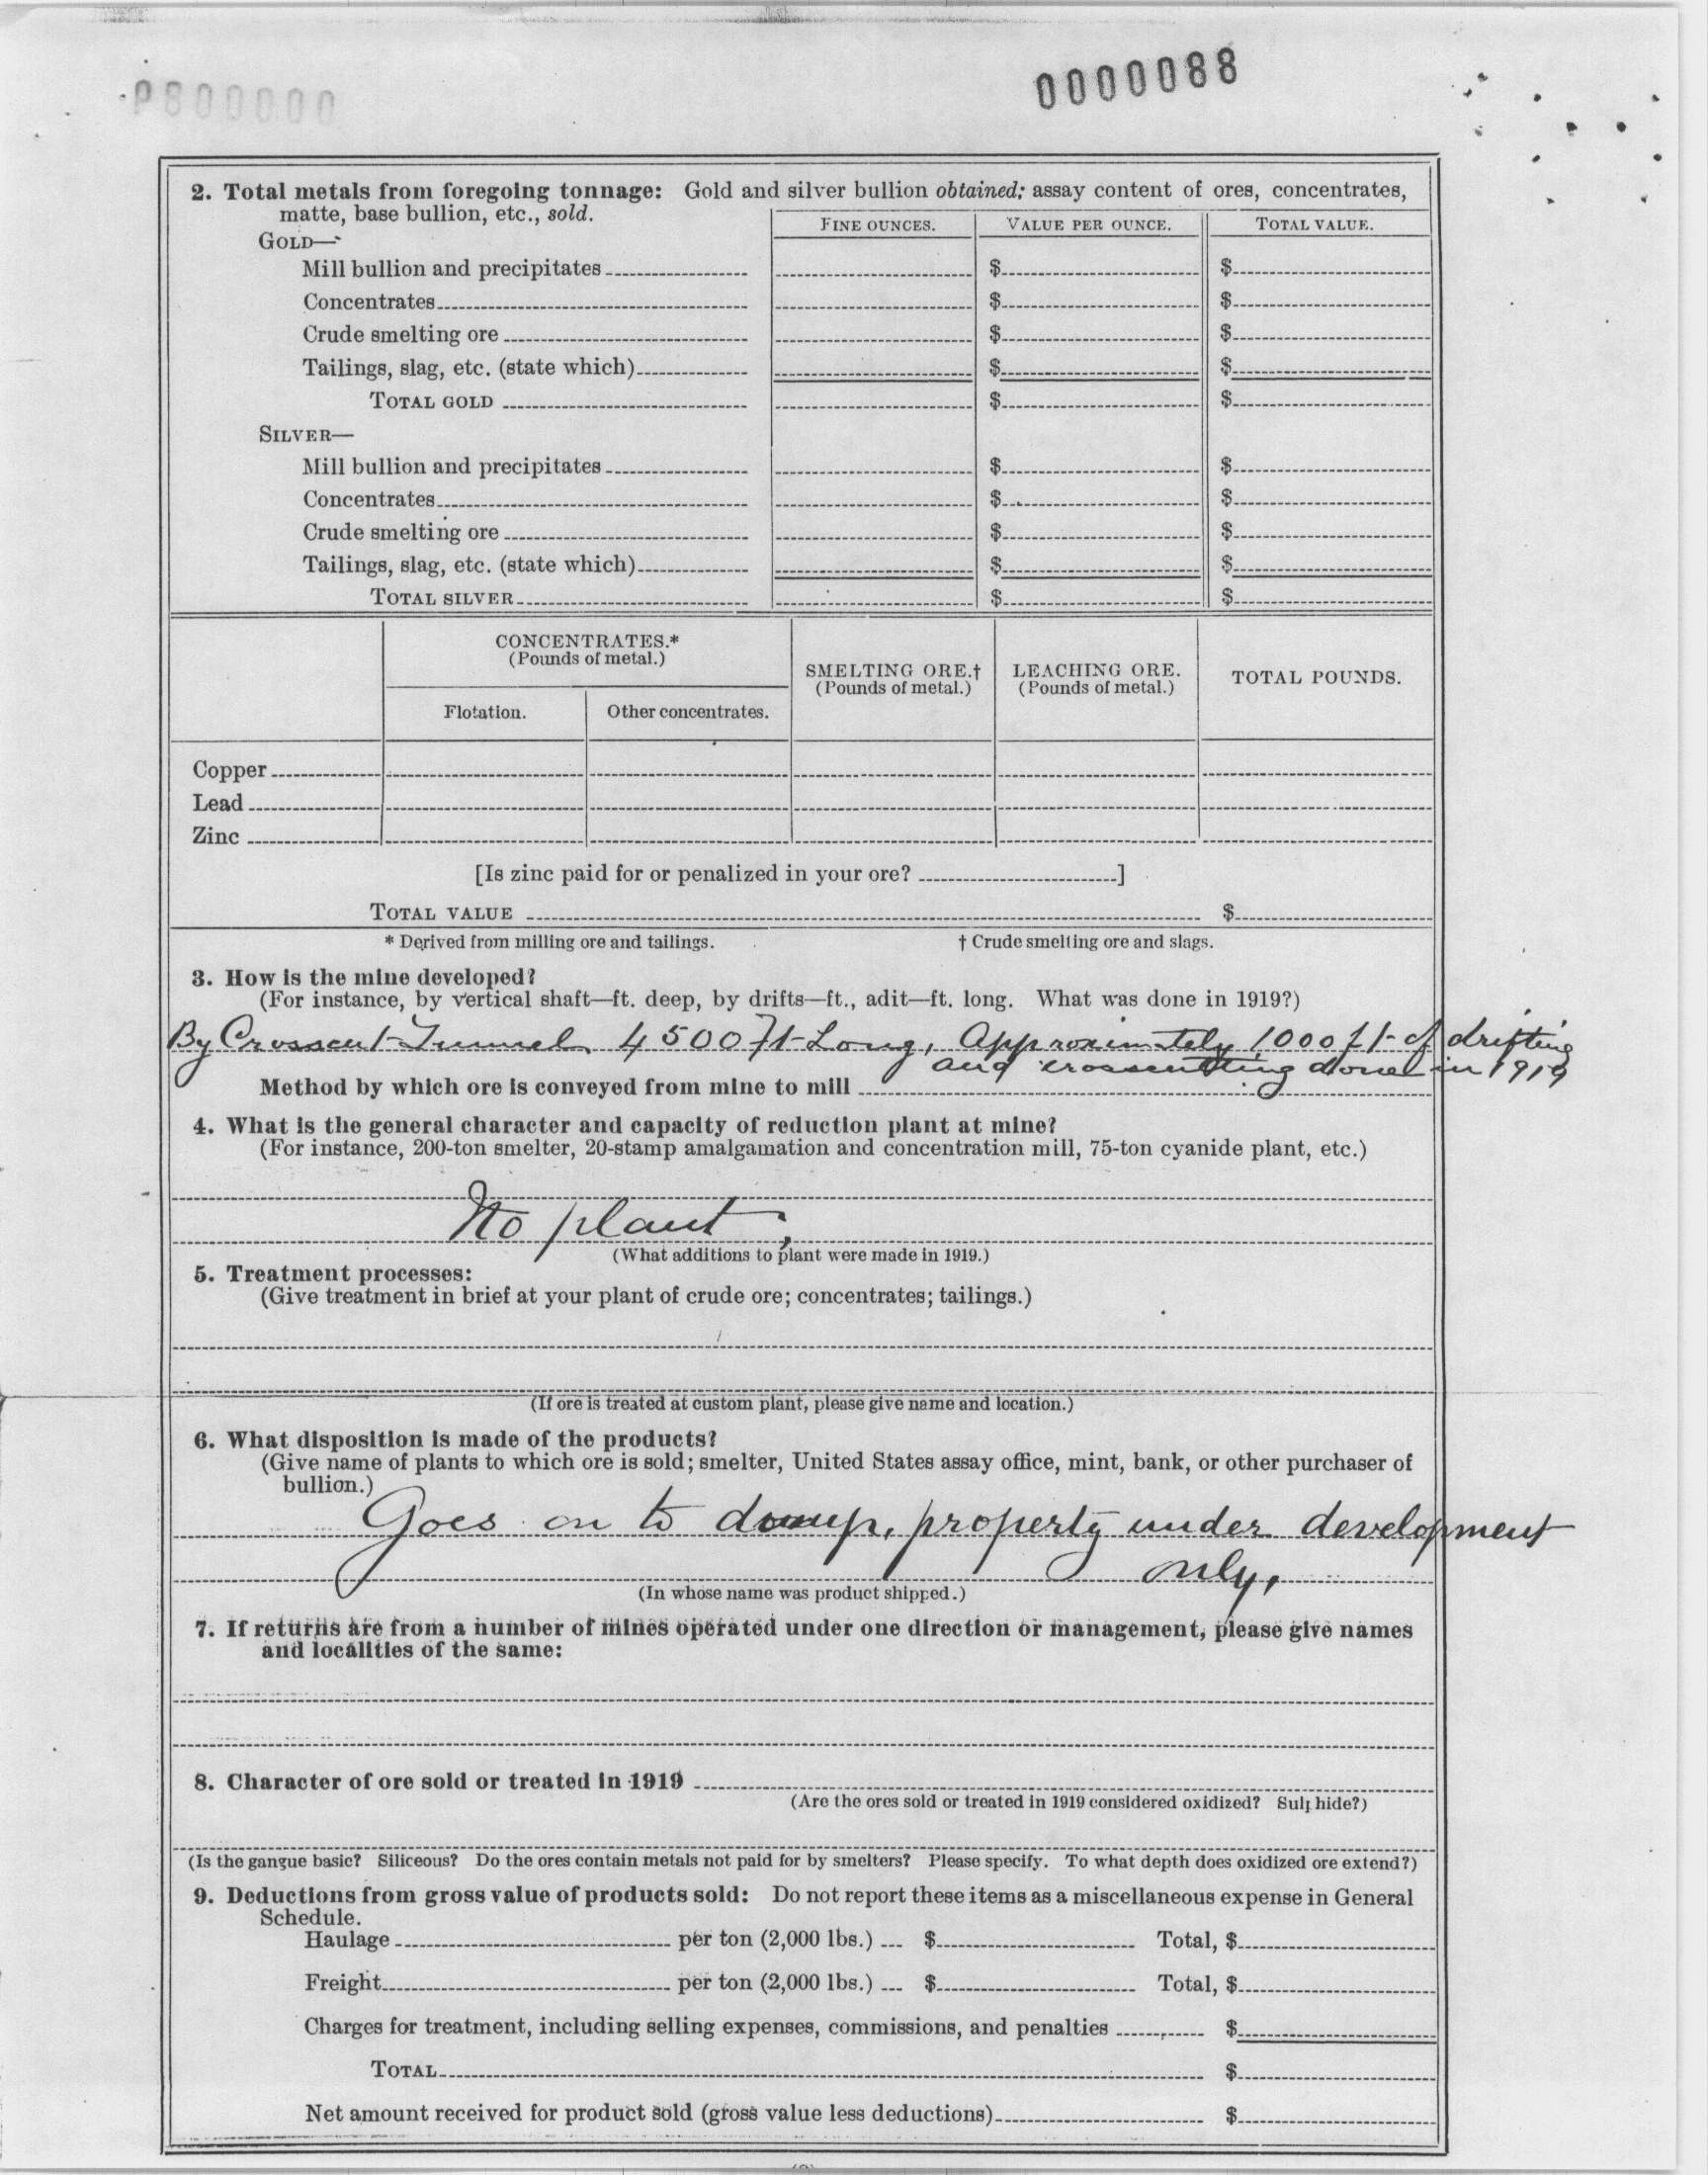 0000088
2. Total metals from foregoing tonnage: Gold and silver bullion obtained; assay content of ores, concentrates,
matte, base bullion, etc., sold.
FINE OUNCES. VALUE PER OUNCE. TOTAL VALUE.
GOLD—
Mill bullion and precipitates $ $
Concentrates $ $
Crude smelting ore $ $
Tailings, slag, etc. (state which) $ $
TOTAL GOLD $ $
SILVER—
Mill bullion and precipitates $ $
Concentrates $ $
Crude smelting ore $ $
Tailings, slag, etc. (state which) $ $
TOTAL SILVER $ $
CONCENTRATES.*
(Pounds of metal.)
SMELTING ORE.† LEACHING ORE. TOTAL POUNDS.
(Pounds of metal.) (Pounds of metal.)
Flotation. Other concentrates.
Copper
Lead
Zinc
[Is zinc paid for or penalized in your ore? ]
TOTAL VALUE $
* Derived from milling ore and tailings. † Crude smelting ore and slags.
3. How is the mine developed?
(For instance, by vertical shaft—ft. deep, by drifts—ft., adit—ft. long. What was done in 1919?)
By Crosscut Tunnel 4500 ft Long, Approximately 1000 ft of drifting
and crosscutting done in 1919
Method by which ore is conveyed from mine to mill
4. What is the general character and capacity of reduction plant at mine?
(For instance, 200-ton smelter, 20-stamp amalgamation and concentration mill, 75-ton cyanide plant, etc.)
No plant,
(What additions to plant were made in 1919.)
5. Treatment processes:
(Give treatment in brief at your plant of crude ore; concentrates; tailings.)
(If ore is treated at custom plant, please give name and location.)
6. What disposition is made of the products?
(Give name of plants to which ore is sold; smelter, United States assay office, mint, bank, or other purchaser of
bullion.)
Goes on to dump, property under development
only,
(In whose name was product shipped.)
7. If returns are from a number of mines operated under one direction or management, please give names
and localities of the same:
8. Character of ore sold or treated in 1919
(Are the ores sold or treated in 1919 considered oxidized? Sulphide?)
(Is the gangue basic? Siliceous? Do the ores contain metals not paid for by smelters? Please specify. To what depth does oxidized ore extend?)
9. Deductions from gross value of products sold: Do not report these items as a miscellaneous expense in General
Schedule.
Haulage per ton (2,000 lbs.) $ Total, $
Freight per ton (2,000 lbs.) $ Total, $
Charges for treatment, including selling expenses, commissions, and penalties $
TOTAL $
Net amount received for product sold (gross value less deductions) $